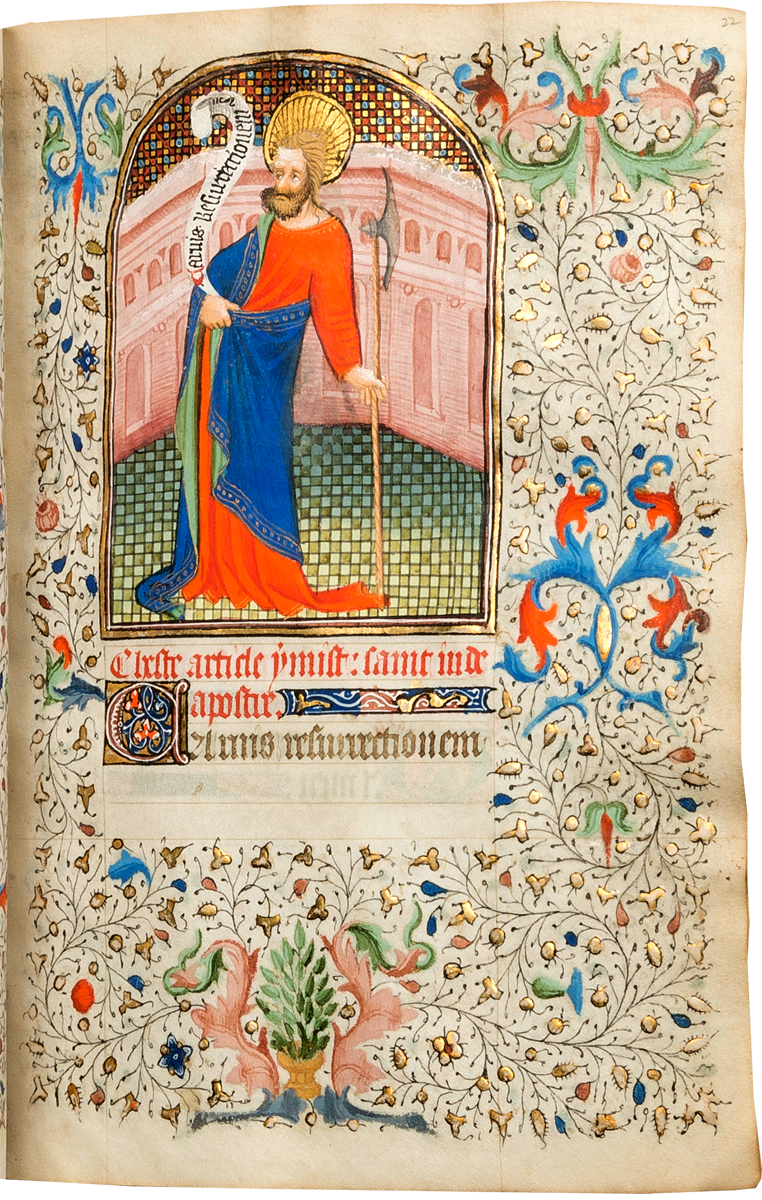 22
Carnis Resurrectionem
Cheste article ẏ mist : saint iude
apostre.
CArnis resurrectionem